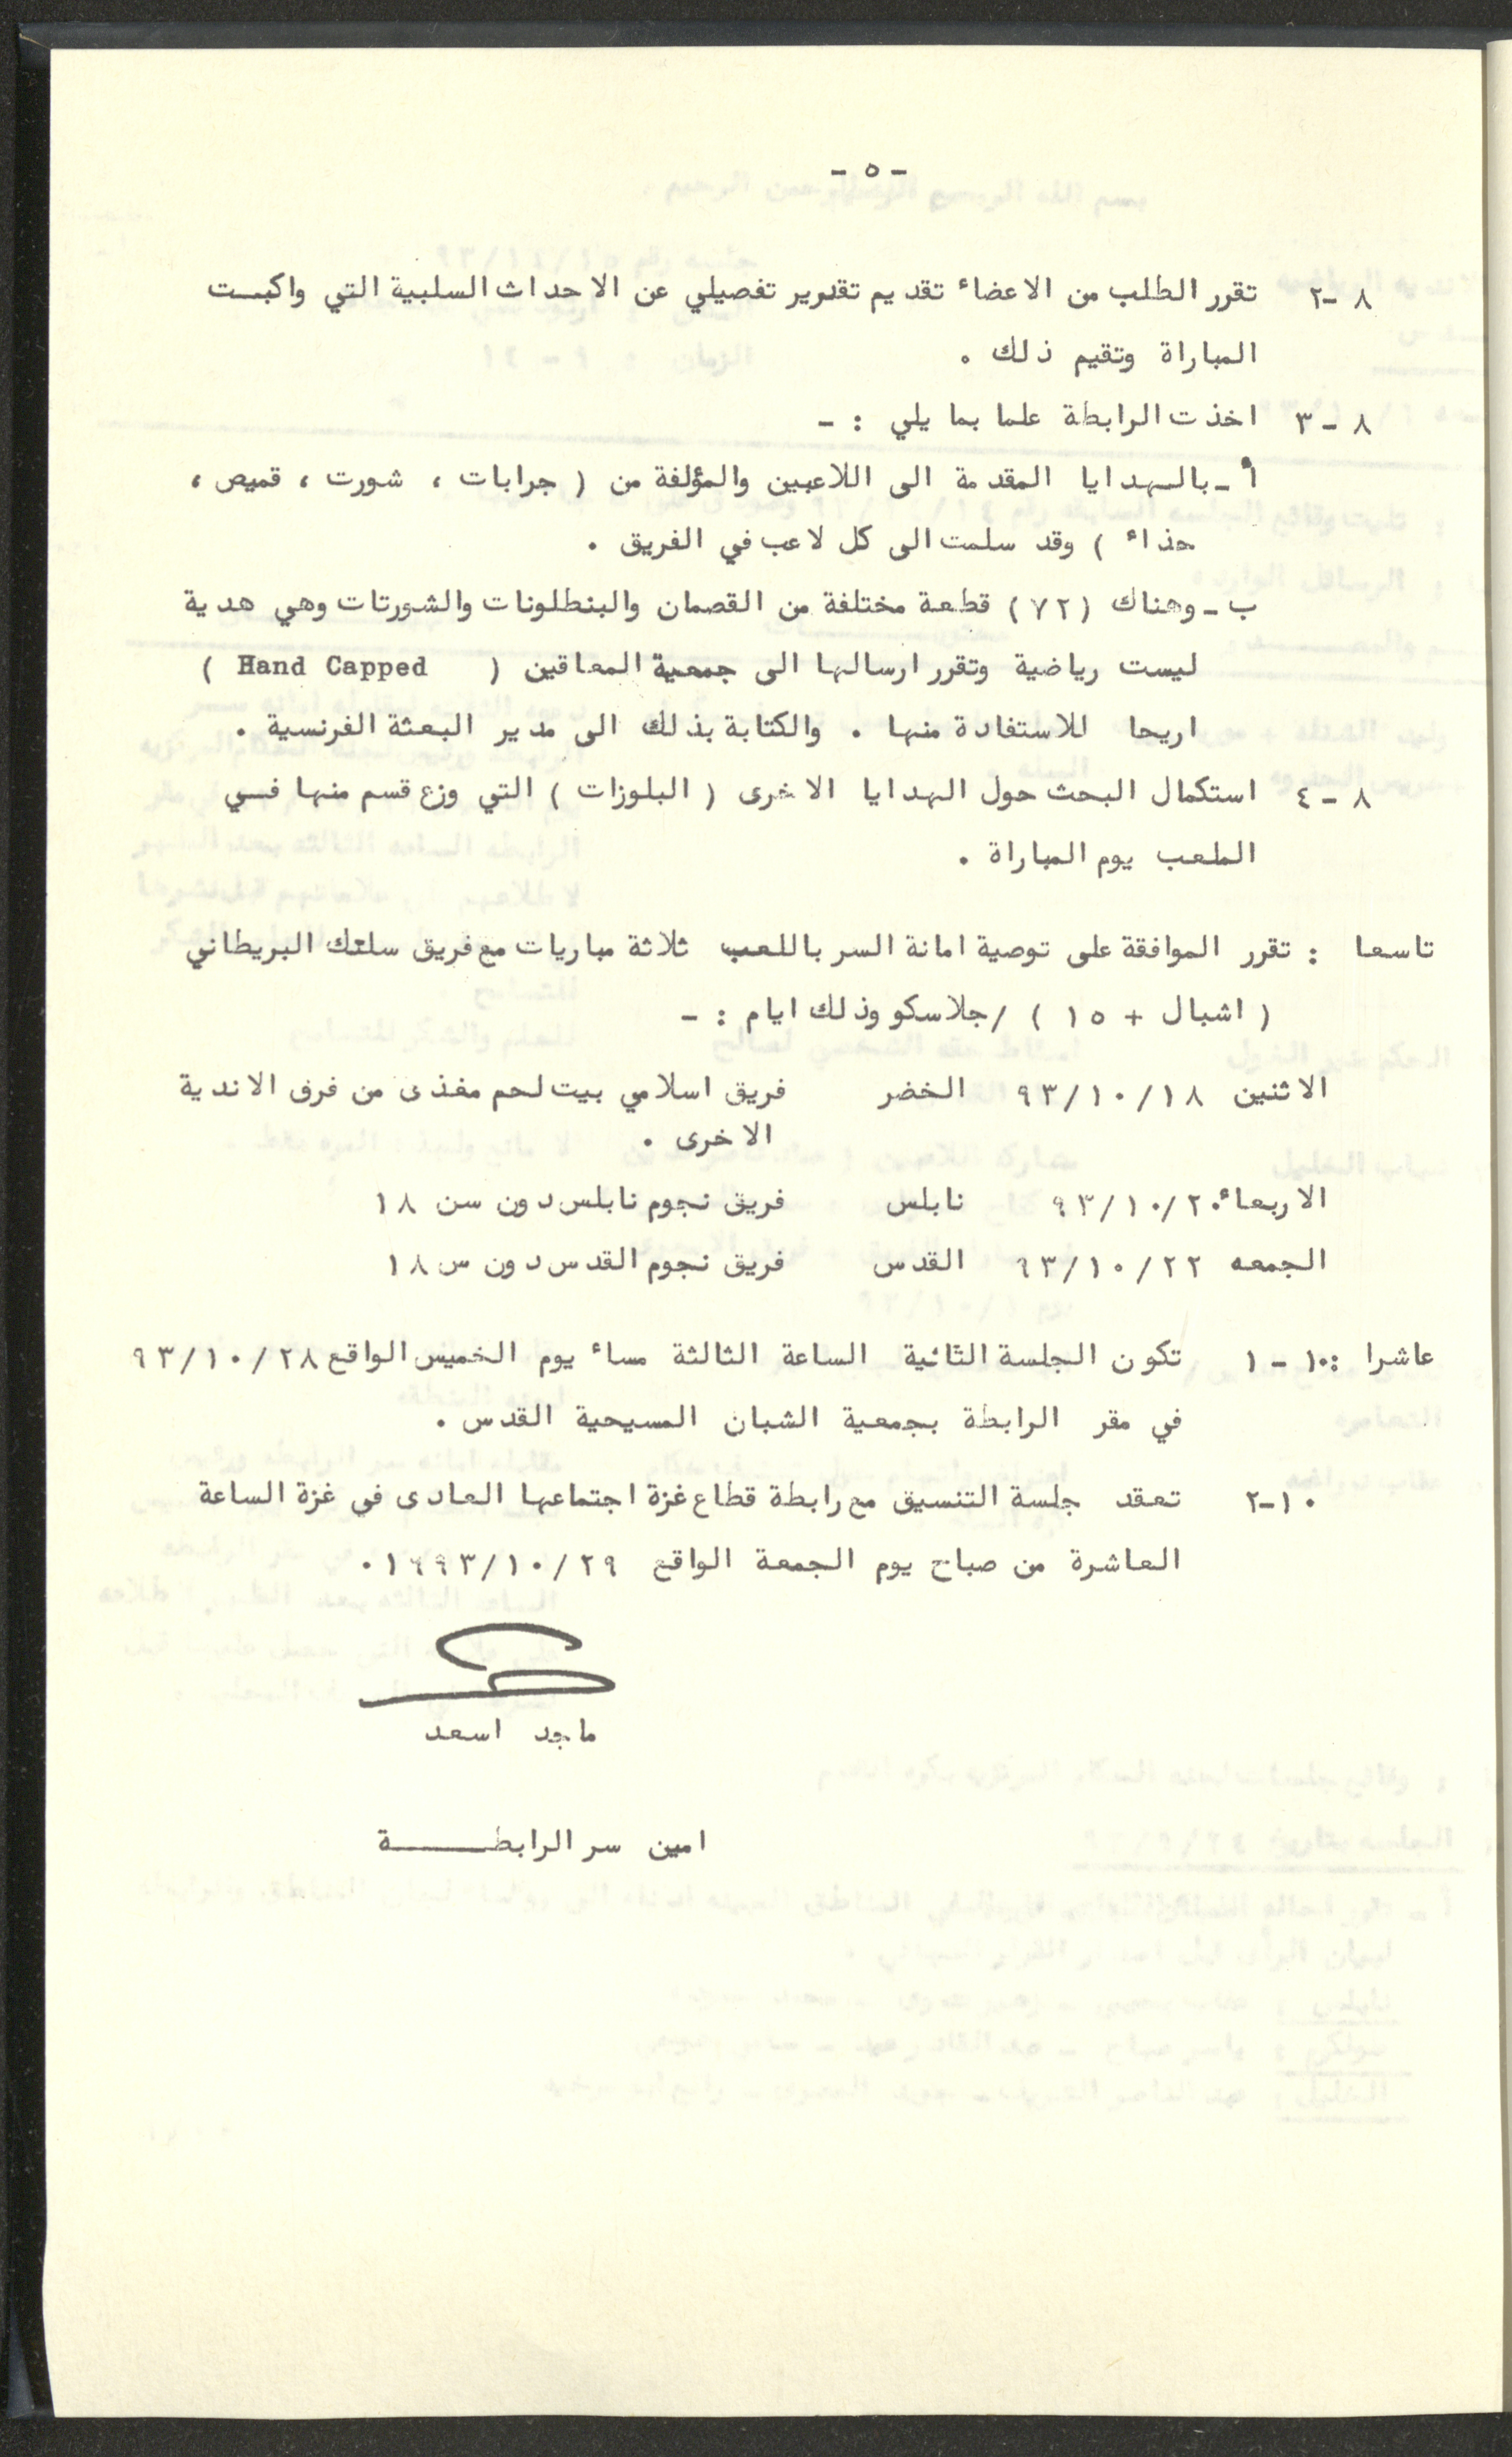 - ٥ -
٨ -٢ تقرر الطلب من الاعضاء تقديم تقدير تفصيلي عن الاحداث السلبية التي واكبـت
المباراة وتقيم ذلك .
٨ - ٣ اخذت الرابطة علما بما يلي : -
أ - بالهدايا المقدمة الى اللاعبين والمؤلفة من ( جرابات ، شورت ، قميص ،
حذاء ) وقد سلمت الى كل لاعب في الفريق .
ب - وهناك (٧٢) قطعة مختلفة من القصمان والبنطلونات والشورتات وهي هدية
ليست رياضية وتقرر ارسالها الى جمعية المعاقين ( Hand Capped )
اريحا للاستفادة منها . والكتابة بذلك الى مدير البعثة الفرنسية .
٨ - ٤ استكمال البحث حول الهدايا الاخرى ( البلوزات ) التي وزع قسم منها فـي
الملعب يوم المباراة .
تاسعا : تقرر الموافقة على توصية امانة السر باللعب ثلاثة مباريات مع فريق سلتك البريطاني
( اشبال + ١٥ ) /جلاسكو وذلك ايام : -
الاثنين ٩٣/١٠/١٨ الخضر فريق اسلامي بيت لحم مغذى من فرق الاندية
الاخرى .
الاربعاء ٩٣/١٠/٢٠ نابلس فريق نجوم نابلس دون سن ١٨
الجمعه ٩٣/١٠/٢٢ القدس فريق نجوم القدس دون س ١٨
عاشرا : ١٠ - ١ تكون الجلسة الثانية الساعة الثالثة مساء يوم الخميس الواقع ٩٣/١٠/٢٨
في مقر الرابطة بجمعية الشبان المسيحية القدس .
١٠-٢ تعقد جلسة التنسيق مع رابطة قطاع غزة اجتماعها العادى في غزة الساعة
العاشرة من صباح يوم الجمعة الواقع ١٩٩٣/١٠/٢٩ .
ماجد اسعد
امين سر الرابطـــــة